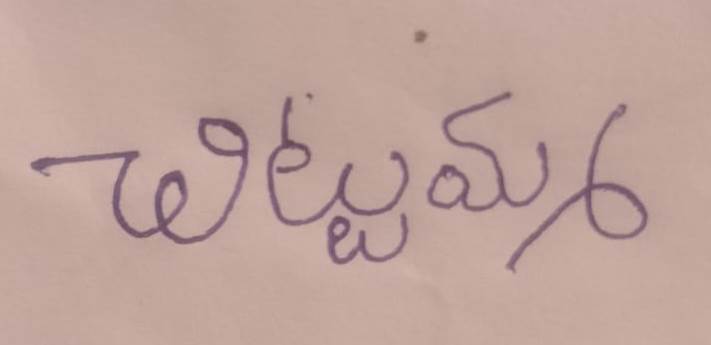 చిట్టుమ్మ